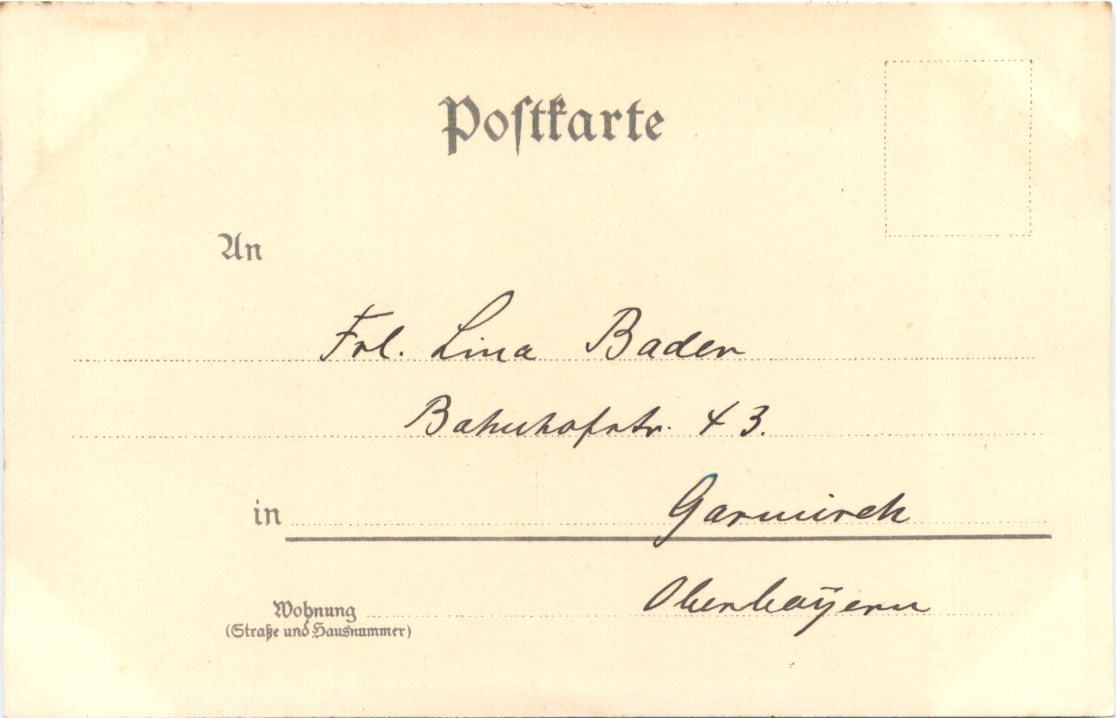 Postkarte
An
Frl. Lina Bader
Bahnhofstr. 43.
in Garmisch
Oberbayern
Wohnung
(Straße und Hausnummer)